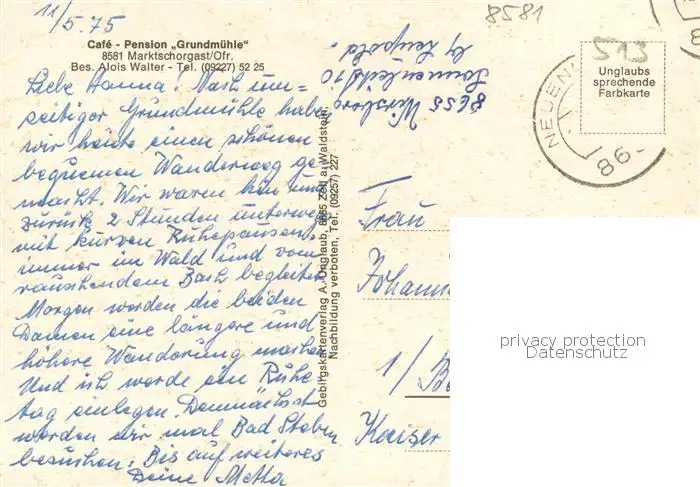 11/5.75
Café - Pension „Grundmühle"
8581 Marktschorgast/Ofr.
Bes. Alois Walter - Tel. (09227) 52 25
Liebe Hanna! Nach
zeitiger Grundmühle haben
wir heute einen schönen
bequemen Wanderweg ge-
macht. Wir waren hin und
zurück 2 Stunden unterwegs
mit kurzen Ruhepausen,
immer im Wald und vom
rauschendem Bach begleitet.
Morgen werden die beiden
Damen eine längere und
höhere Wanderung machen
Und ich werde ein Ruhe
tag einlegen. Demnächst
werden wir mal Bad Steben
besuchen. Bis auf weiteres
Deine Metta
Gebirgskartenverlag A. Unglaub, 8665 Zell a. Waldstein,
Nachbildung verboten, Tel. (09257) 227
8655 Wirsberg
Sonnenleite 10
by Leupold.
8581
513
Unglaubs
sprechende
Farbkarte
NEUEN
86-
Frau
Johann
1/ Be
Kaiser
privacy protection
Datenschutz